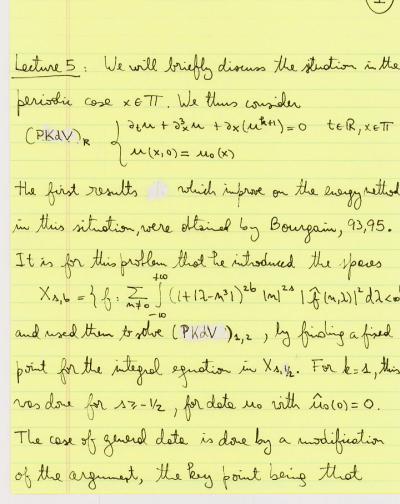 1
Lecture 5 : We will briefly discuss the situation in the
periodic case x ∈ 𝕋. We thus consider
(PKdV)_k { ∂_t u + ∂_x^3 u + ∂_x(u^{k+1}) = 0 t∈ℝ, x∈𝕋
u(x,0) = u_0(x)
The first results which improve on the energy method
in this situation, were obtained by Bourgain, 93,95.
It is for this problem that he introduced the spaces
X_{s,b} = { f : ∑_{n≠0} ∫_{-∞}^{+∞} (1+|λ-n^3|)^{2b} |n|^{2s} |f̂(n,λ)|^2 dλ < ∞
and used them to solve (PKdV)_{1,2} , by finding a fixed
point for the integral equation in X_{s,1/2}. For k=1, this
was done for s ≥ -1/2 , for data u_0 with û_0(0) = 0.
The case of general data is done by a modification
of the argument, the key point being that